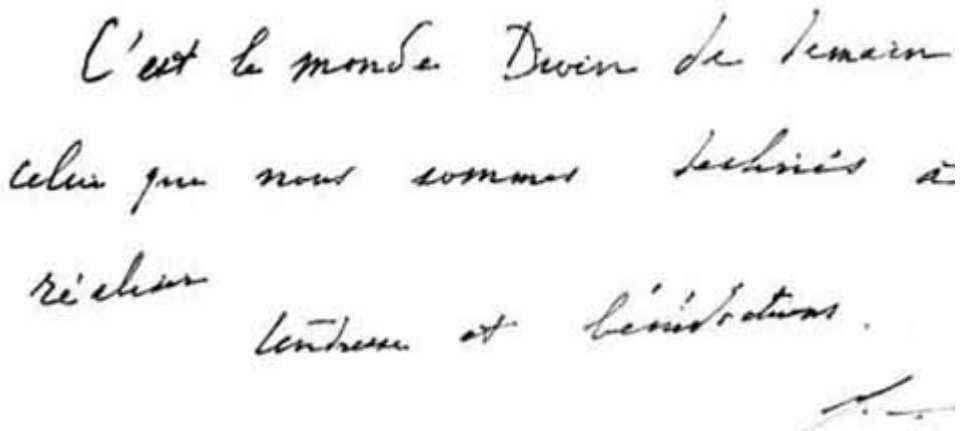 C'est le monde Divin de demain
celui que nous sommes destinés à
réaliser
tendresse et bénédictions.